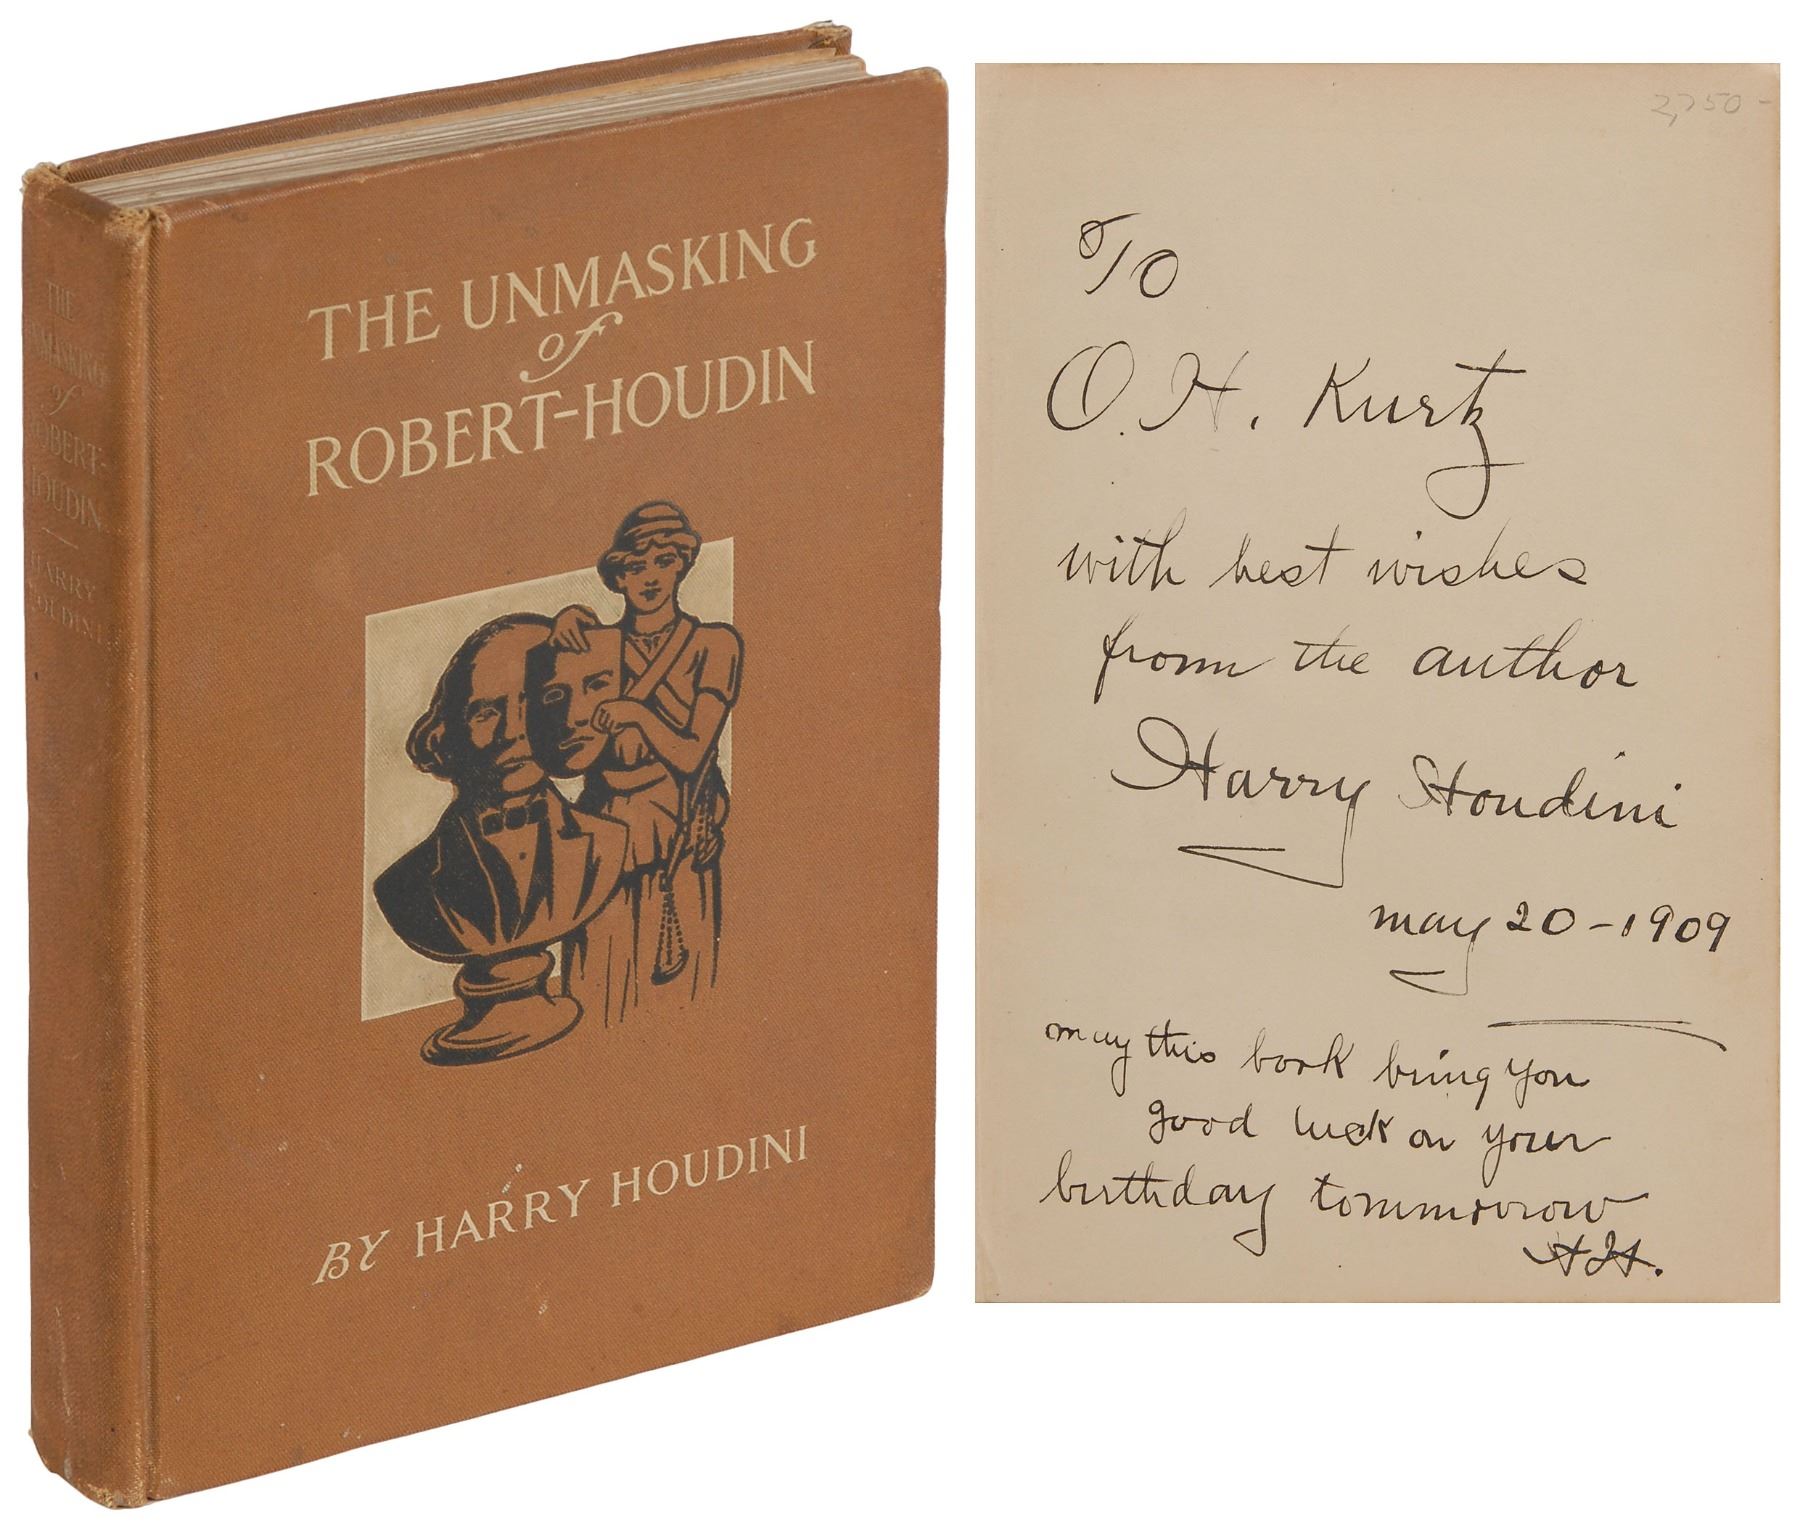 THE
UNMASKING
of
ROBERT-
HOUDIN
HARRY
HOUDINI
THE UNMASKING
of
ROBERT-HOUDIN
BY HARRY HOUDINI
2,750-
To
O. H. Kurtz
with best wishes
from the author
Harry Houdini
may 20-1909
may this book bring you
good luck on your
birthday tommorrow
HH.